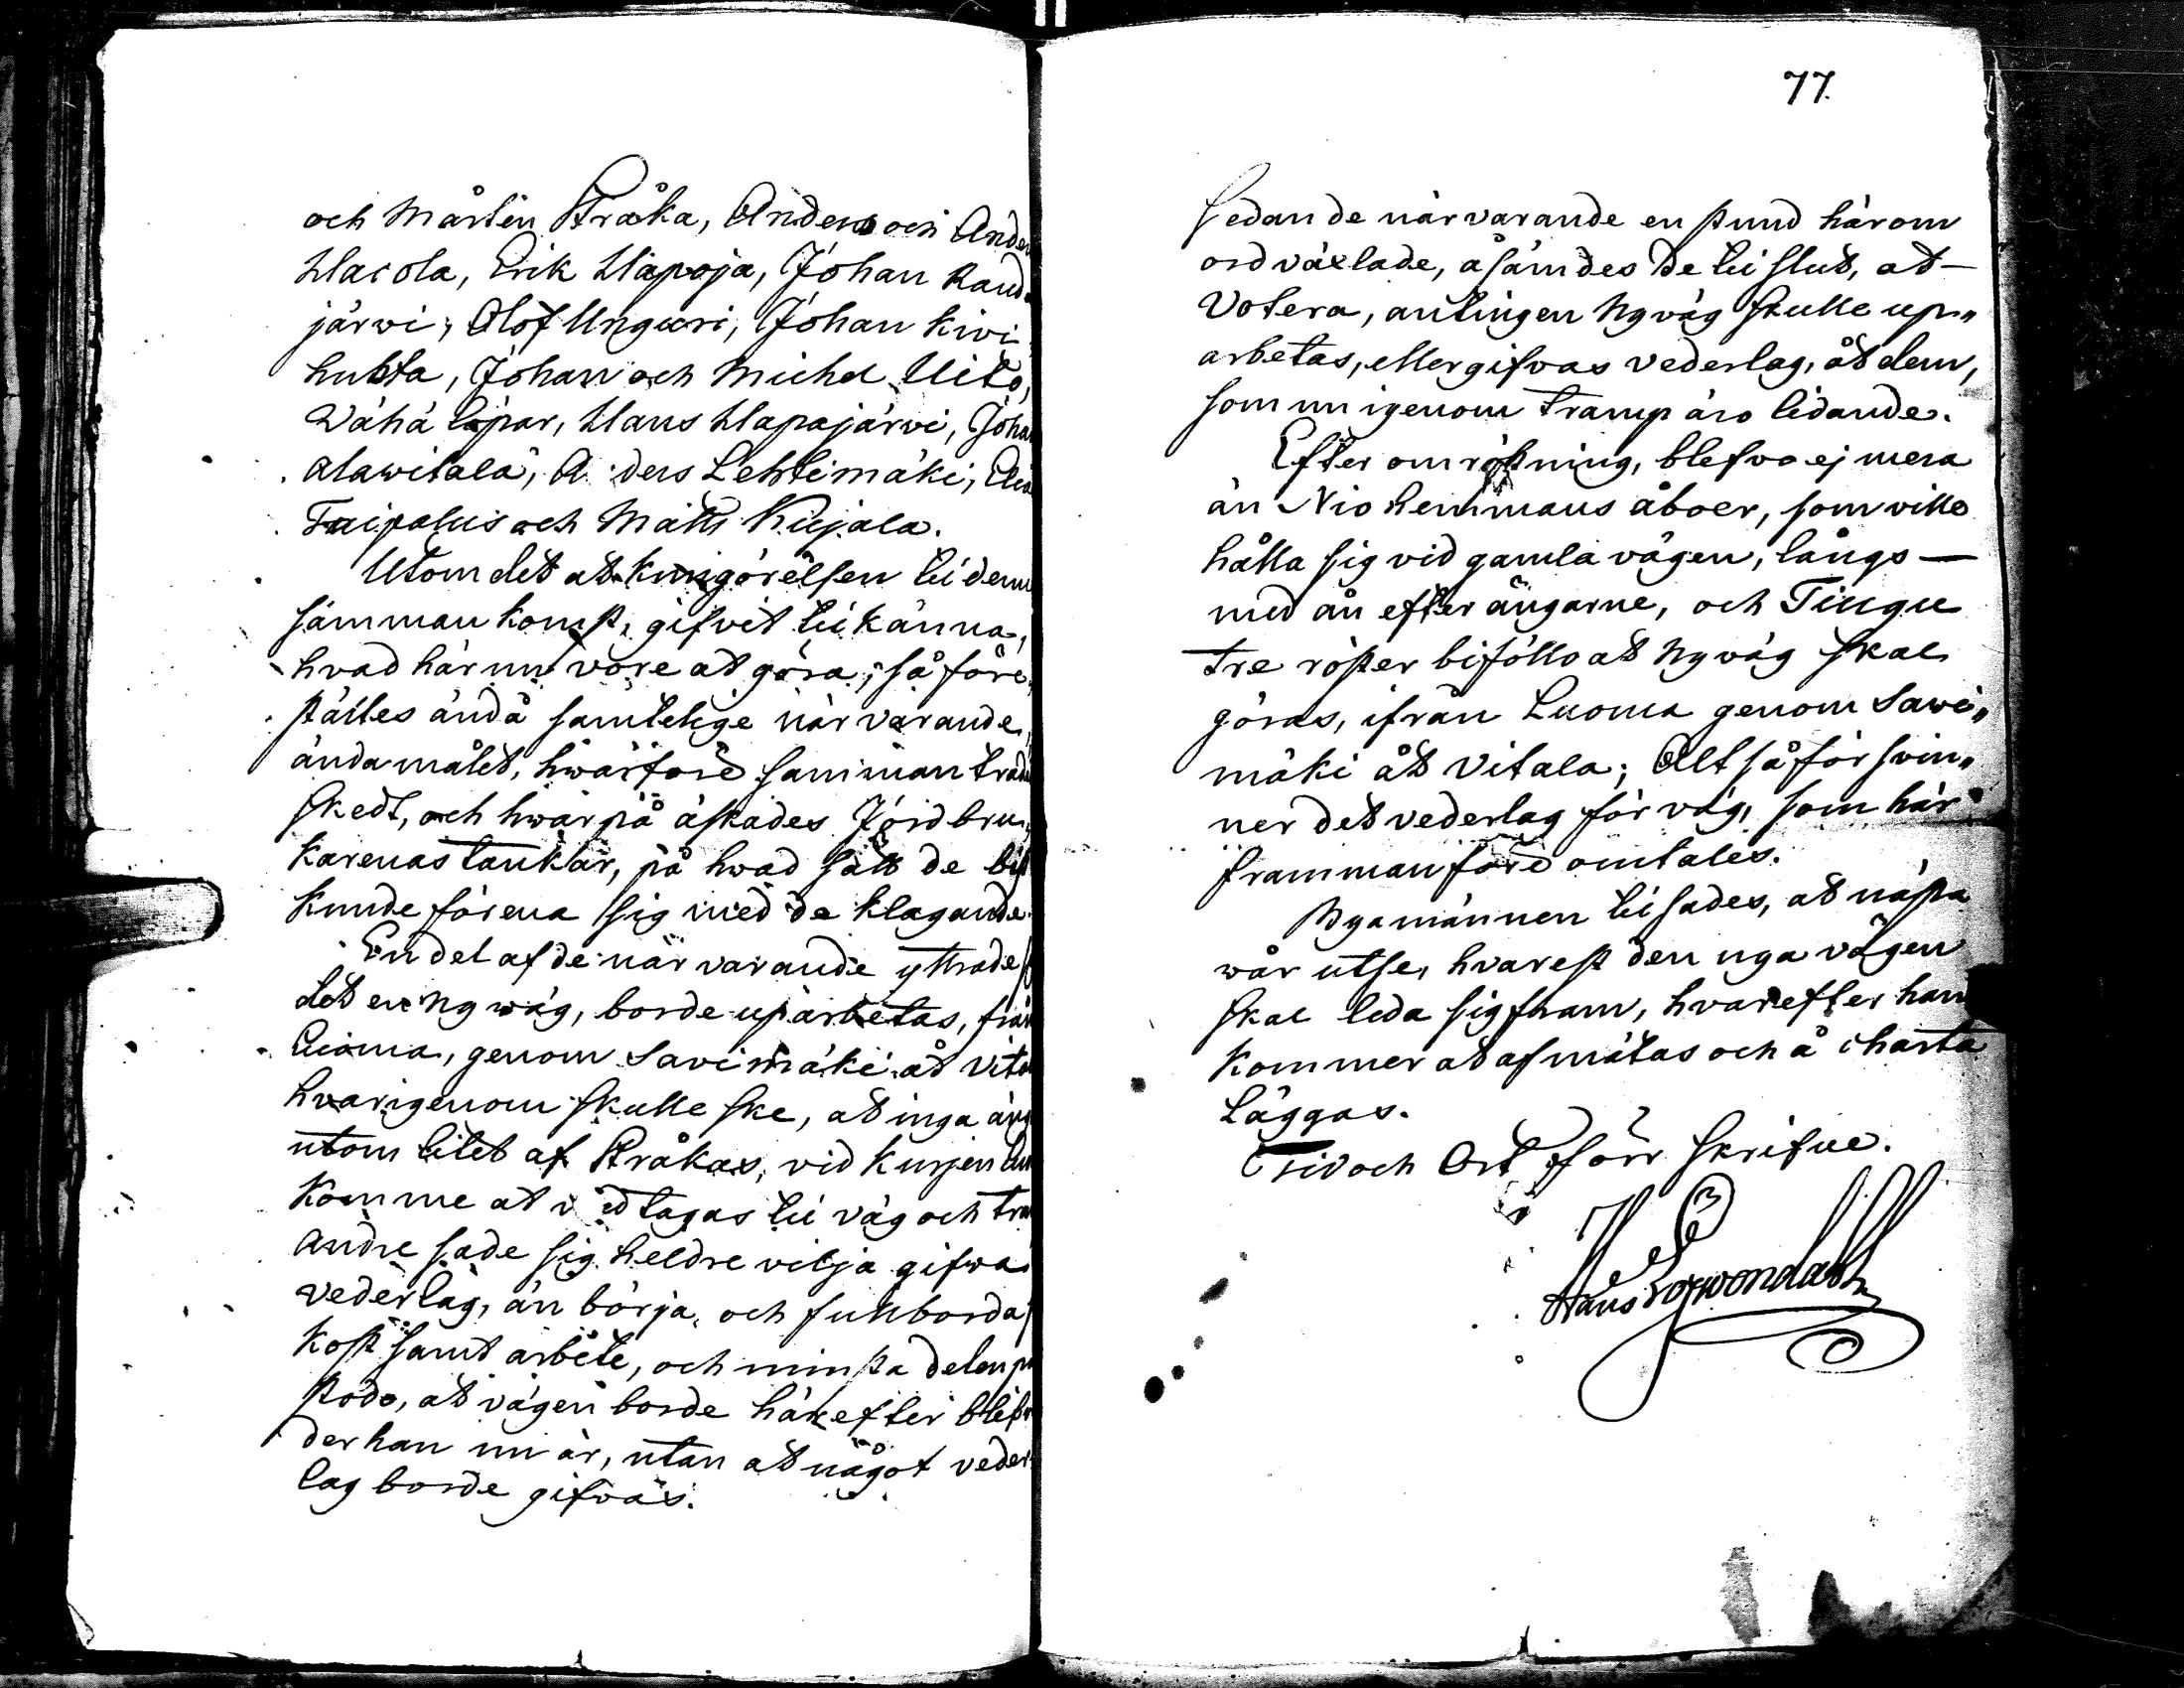 och Mårten Kråka, Anders och Anders
Hacola, Erik Hapoja, Johan Rand
järwi, Olof Unguri, Johan Kivi
huhta, Johan och Michel Uito,
Wähä lapar, Hans Hapajärvi, Johan
Alawitala, A ders Lehtimäki, Elia
Taipalus och Matts Kujala.
Utom det at kungörelsen til denn
samman komst, gifvit tilkänna,
hvad här nu vore at göra; så före
stältes ändå samtelige närvarande,
ändamålet, hwarföre sammanträde
skedt, och hwarpå äskades Jordbru„
karenas tankar, på hwad sätt de bäst
kunde förena sig med de klagande.
En del af de när varande yttrade
det en ny wäg, borde uparbetas, från
Luoma, genom Savimäki åt Vita
hvarigenom skulle ske, at inga äng
utom litet af Kråkas, vid Kurjen lu
komme at vidtagas til väg och tra
Andre sade sig heldre vilja gifwa
vederlag, än börja och fullborda
kostsamt arbete, och minsta delen på
stodo, at vägen borde härefter blifva
der han nu är, utan at något veder
lag borde gifvas.
77.
Sedan de närvarande en stund härom
ordväxlade, åsämdes de til slut, at—
Votera, antingen ny väg skulle up„
arbetas, eller gifvas vederlag, åt dem,
som nu igenom tramp äro lidande.
Efter omröstning, blefvo ej mera
än Nio hemmans åboer, som ville
hålla sig vid gamla vägen, längs—
med ån efter ängarne, och Tiugu
tre röster biföllo at ny väg skal
göras, ifrån Luoma genom Sawi„
mäki åt Vitala; Altså försvin„
ner det vederlag för väg, som här
frammanföre omtales.
Nya männen tilsades, at nästa
wår utse, hvarest den nya vägen
skal leda sig fram, hvarefter han
kommer at afmätas och å charta
läggas.
Tid och Ort förr skrifne.
Hans